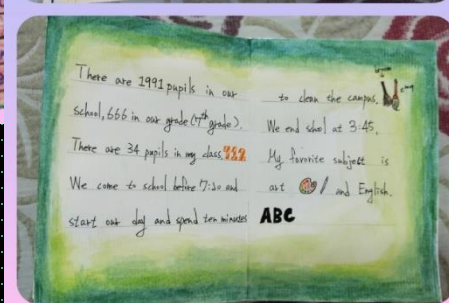 There are 1991 pupils in our
school, 666 in our grade (7th grade).
There are 34 pupils in my class.
We come to school before 7:30 and
start our day and spend ten minutes
to clean the campus.
We end school at 3:45.
My favorite subject is
art and English.
ABC